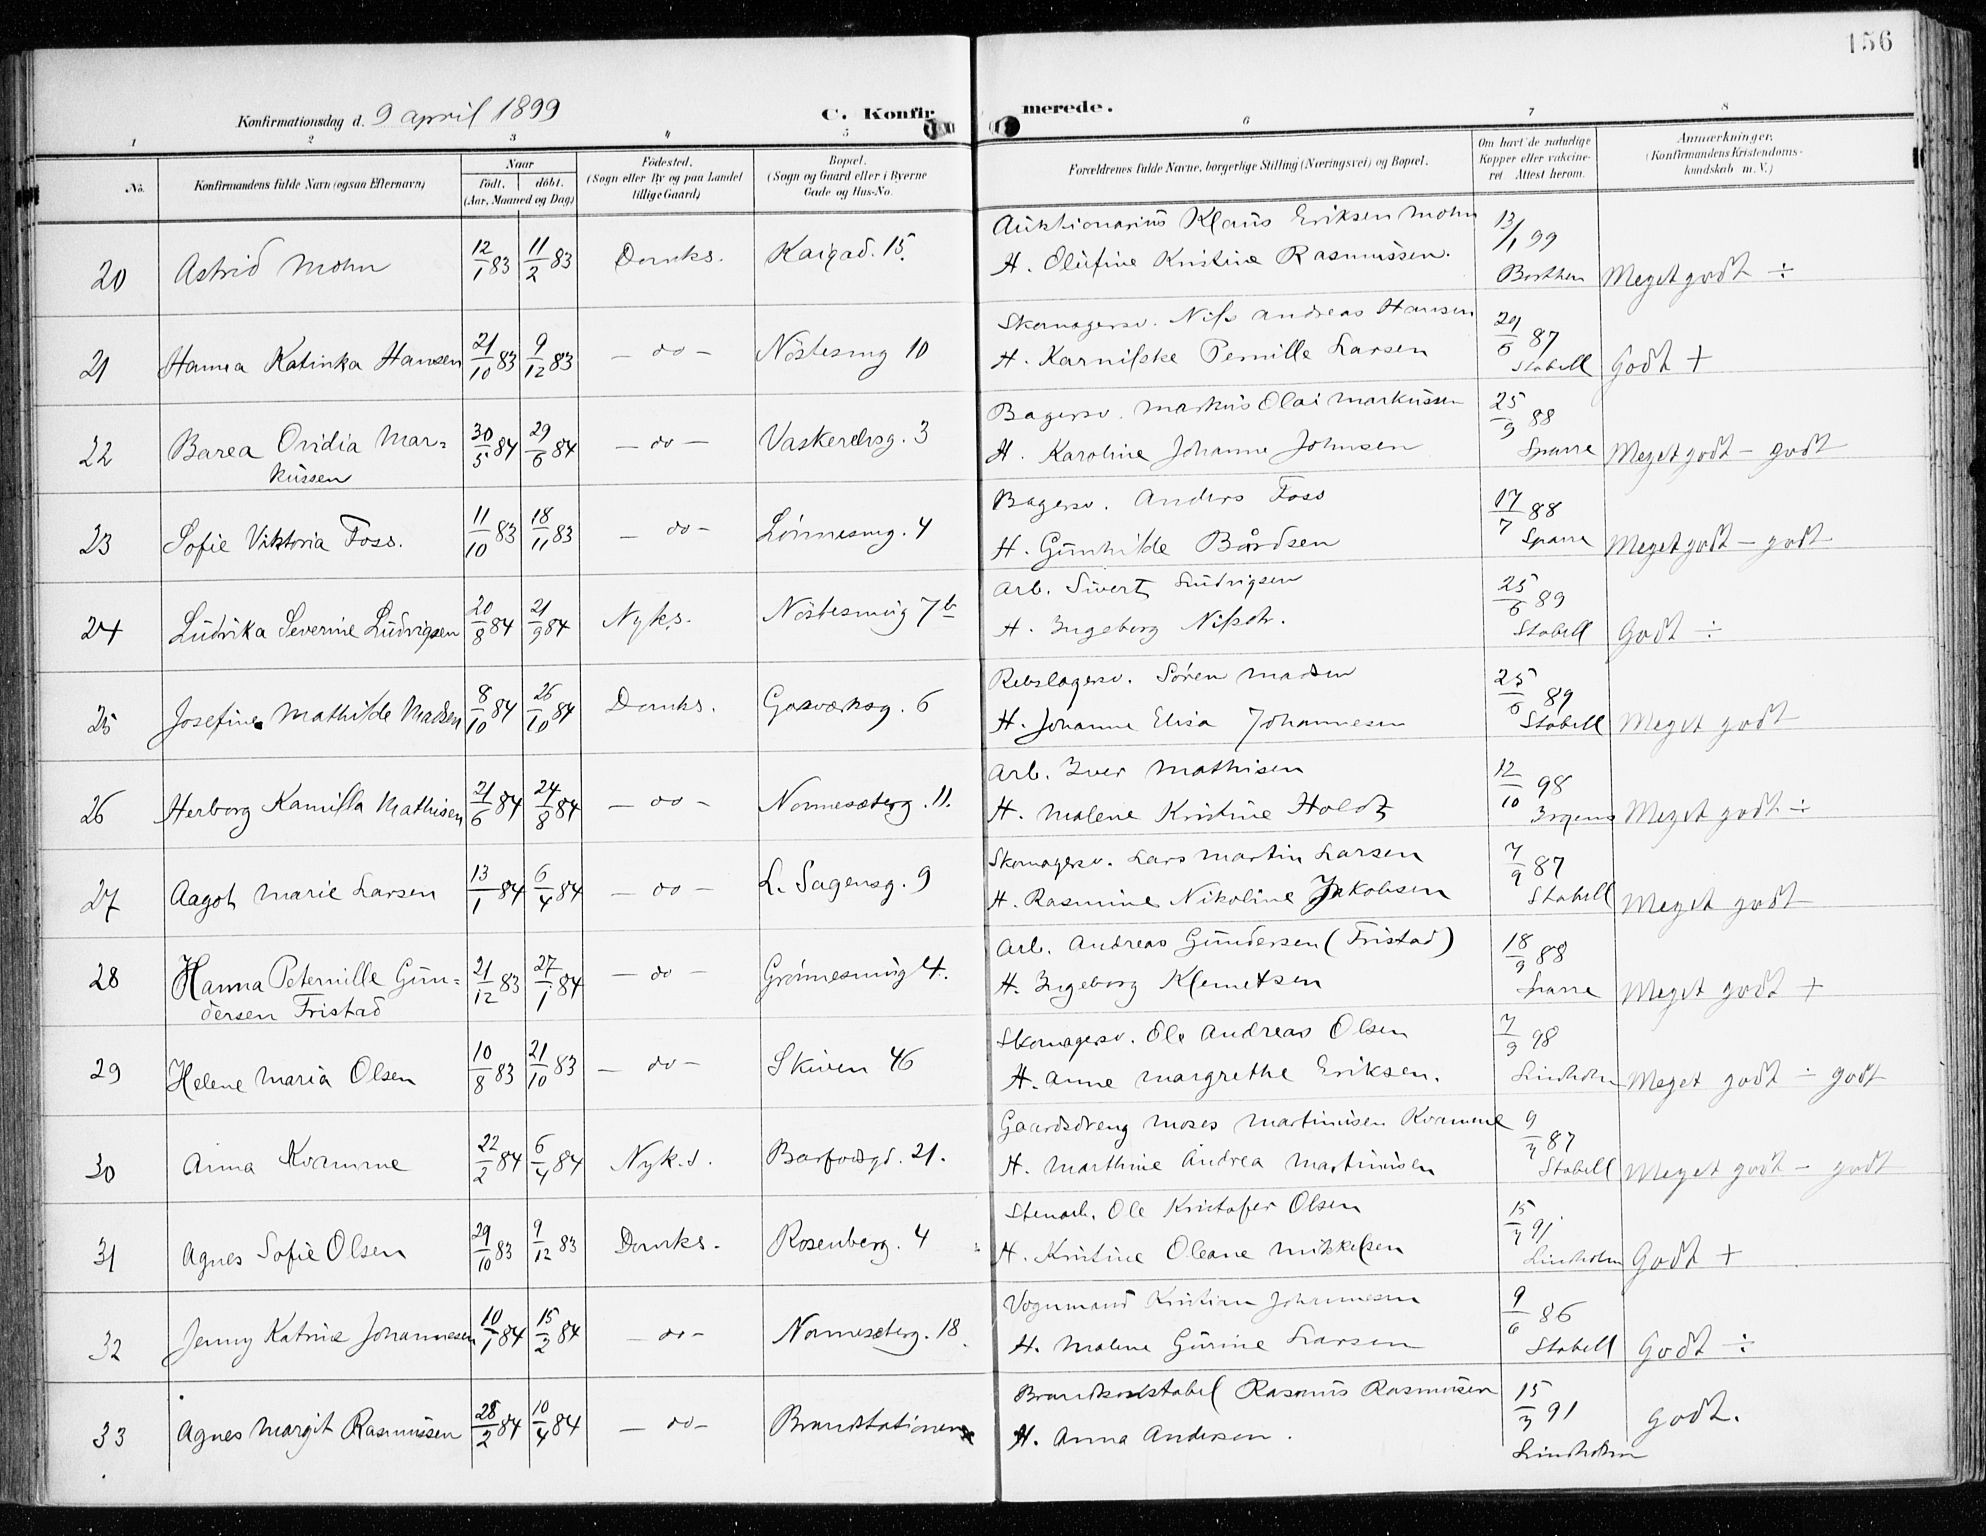 156
Konfirmationsdag d. 9 april 1899 C. Konfirmerede.
1 2 3 4 5 6 7 8
No. Konfirmandens fulde Navn (ogsaa Efternavn) Naar født. døbt. (Aar, Maaned og Dag) Fødested. (Sogn eller By og paa Landet tillige Gaard) Bopæl. (Sogn og Gaard eller i Byerne Gade og Hus-No. Forældrenes fulde Navne, borgerlige Stilling (Næringsvei) og Bopæl. Om havt de naturlige Kopper eller vaccineret. Attest herom. Anmærkninger. (Konfirmandens Kristendomskundskab m. V.)
20 Astrid Mohn 12/1 83 11/2 83 Domks. Kaigad. 15. Auktionarius Klaus Eriksen Mohn 13/1 99
H. Olufine Kristine Rasmussen. Borthen Meget godt ÷
21 Hanna Katinka Hansen 21/10 83 9/12 83 — do — Nöstesmug 10 Skomagersv. Nils Andreas Hansen 29/6 87
H. Karniske Pernille Larsen Stabell Godt +
22 Barea Ovidia Mar= 30/5 84 29/6 84 — do — Vaskerelvsg. 3 Bagersv. Markus Olai Markussen 25/9 88
kussen H. Karoline Johanne Johnsen Sparre Meget godt — godt
23 Sofie Viktoria Foss. 11/10 83 18/11 83 — do — Lønnesmug. 4 Bagersv. Anders Foss 17/7 88
H. Gunhilde Bårdsen Sparre Meget godt — godt
24 Ludvika Severine Ludvigsen 20/8 84 21/9 84 Nyks. Nöstesmug 7b Arb. Sivert Ludvigsen 25/6 89
H. Ingeborg Nilsdtr. Stabell Godt ÷
25 Josefine Mathilde Madsen 8/10 84 26/10 84 Domks. Gasværksg. 6 Rebslagersv. Sören Madsen 25/6 89
H. Johanne Elisa Johannesen Stabell Meget godt
26 Herborg Kamilla Mathisen 21/6 84 24/8 84 — do — Nonnesæterg. 11. Arb. Iver Mathisen 12/10 98
H. Malene Kristine Holdt Irgens Meget godt ÷
27 Aagot Marie Larsen 13/1 84 6/4 84 — do — L. Sagensg. 9 Skomagersv. Lars Martin Larsen 7/9 87
H. Rasmine Nikoline Jakobsen Stabell Meget godt
28 Hanna Peternille Gun= 21/12 83 27/1 84 — do — Grönnesmug 4. Arb. Andreas Gundersen (Fristad) 18/9 88
dersen Fristad H. Ingeborg Klemetsen Sparre Meget godt +
29 Helene Maria Olsen 10/8 83 21/10 83 — do — Skiven 46 Skomagersv. Ole Andreas Olsen 7/9 98
H. Anne Margrethe Eriksen. Lindholm Meget godt ÷ godt
30 Anna Kvamme 22/2 84 6/4 84 Nyk.s. Barfodsgd. 21. Gaardsdreng Moses Martinusen Kvamme 9/7 87
H. Marthine Andrea Martinusen Stabell Meget godt — godt
31 Agnes Sofie Olsen 29/10 83 9/12 83 Domks. Rosenberg. 4 Stenarb. Ole Kristofer Olsen 15/7 91
H. Kristine Oleane Mikkelsen Lindholm Godt +
32 Jenny Katrine Johannesen 10/1 84 15/2 84 — do — Nonnesæterg. 18. Vognmand Kristian Johannesen 9/6 86
H. Malene Gurine Larsen Stabell Godt ÷
33 Agnes Margit Rasmussen 28/2 84 10/4 84 — do — Brandstationen Brandkonstabel Rasmus Rasmussen 15/3 91
H. Anna Andersen. Lindholm godt.